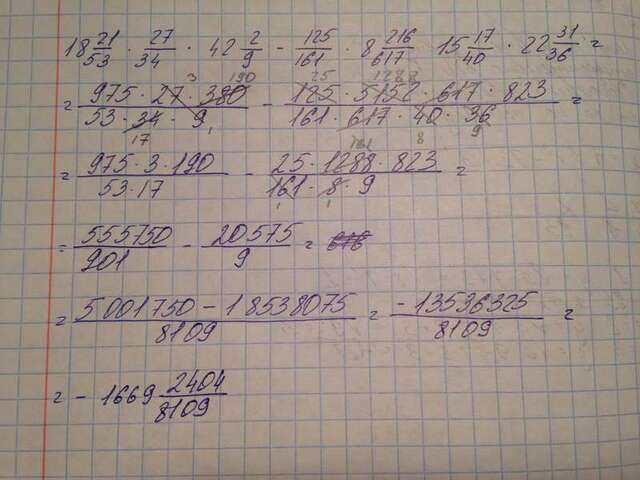 18 21/53 · 27/34 · 42 2/9 - 125/161 · 8 216/617 · 15 17/40 · 22 31/36 =
= 975 · 27 · 380 / 53 · 34 · 9 - 125 · 5152 · 617 · 823 / 161 · 617 · 40 · 36 =
= 975 · 3 · 190 / 53 · 17 - 25 · 1288 · 823 / 161 · 8 · 9 =
= 555750/901 - 20575/9 =
= 5001750 - 18538075 / 8109 = -13536325 / 8109 =
= -1669 2404/8109